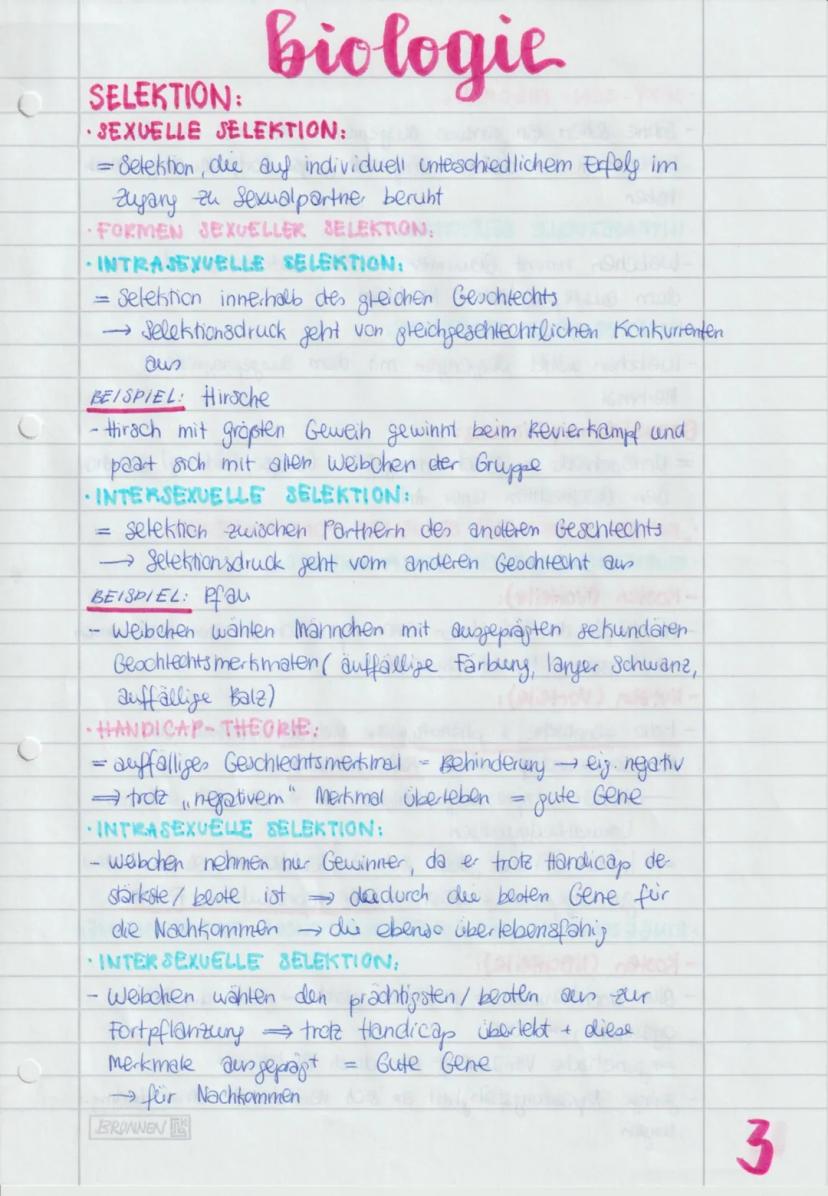 biologie
SELEKTION:
· SEXUELLE SELEKTION:
= Selektion, die auf individuell unterschiedlichem Erfolg im
Zugang zu Sexualpartner beruht
· FORMEN SEXUELLER SELEKTION:
· INTRASEXUELLE SELEKTION:
= Selektion innerhalb des gleichen Geschlechts
→ Selektionsdruck geht von gleichgeschlechtlichen Konkurrenten
aus
BEISPIEL: Hirsche
- Hirsch mit größten Geweih gewinnt beim Revierkampf und
paart sich mit allen Weibchen der Gruppe
· INTERSEXUELLE SELEKTION:
= Selektion zwischen Partnern des anderen Geschlechts
→ Selektionsdruck geht vom anderen Geschlecht aus
BEISPIEL: Pfau
- Weibchen wählen Männchen mit ausgeprägten sekundären
Geschlechtsmerkmalen (auffällige Färbung, langer Schwanz,
auffällige Balz)
· HANDICAP-THEORIE:
= auffälliges Geschlechtsmerkmal = Behinderung → eig. negativ
⇒ trotz „negativem" Merkmal überleben = gute Gene
· INTRASEXUELLE SELEKTION:
- Weibchen nehmen nur Gewinner, da er trotz Handicap der
stärkste / beste ist ⇒ dadurch die besten Gene für
die Nachkommen → die ebenso überlebensfähig
· INTERSEXUELLE SELEKTION:
- Weibchen wählen den prächtigsten / besten aus zur
Fortpflanzung ⇒ trotz Handicap überlebt + diese
Merkmale ausgeprägt = Gute Gene
→ für Nachkommen
BRUNNEN
3